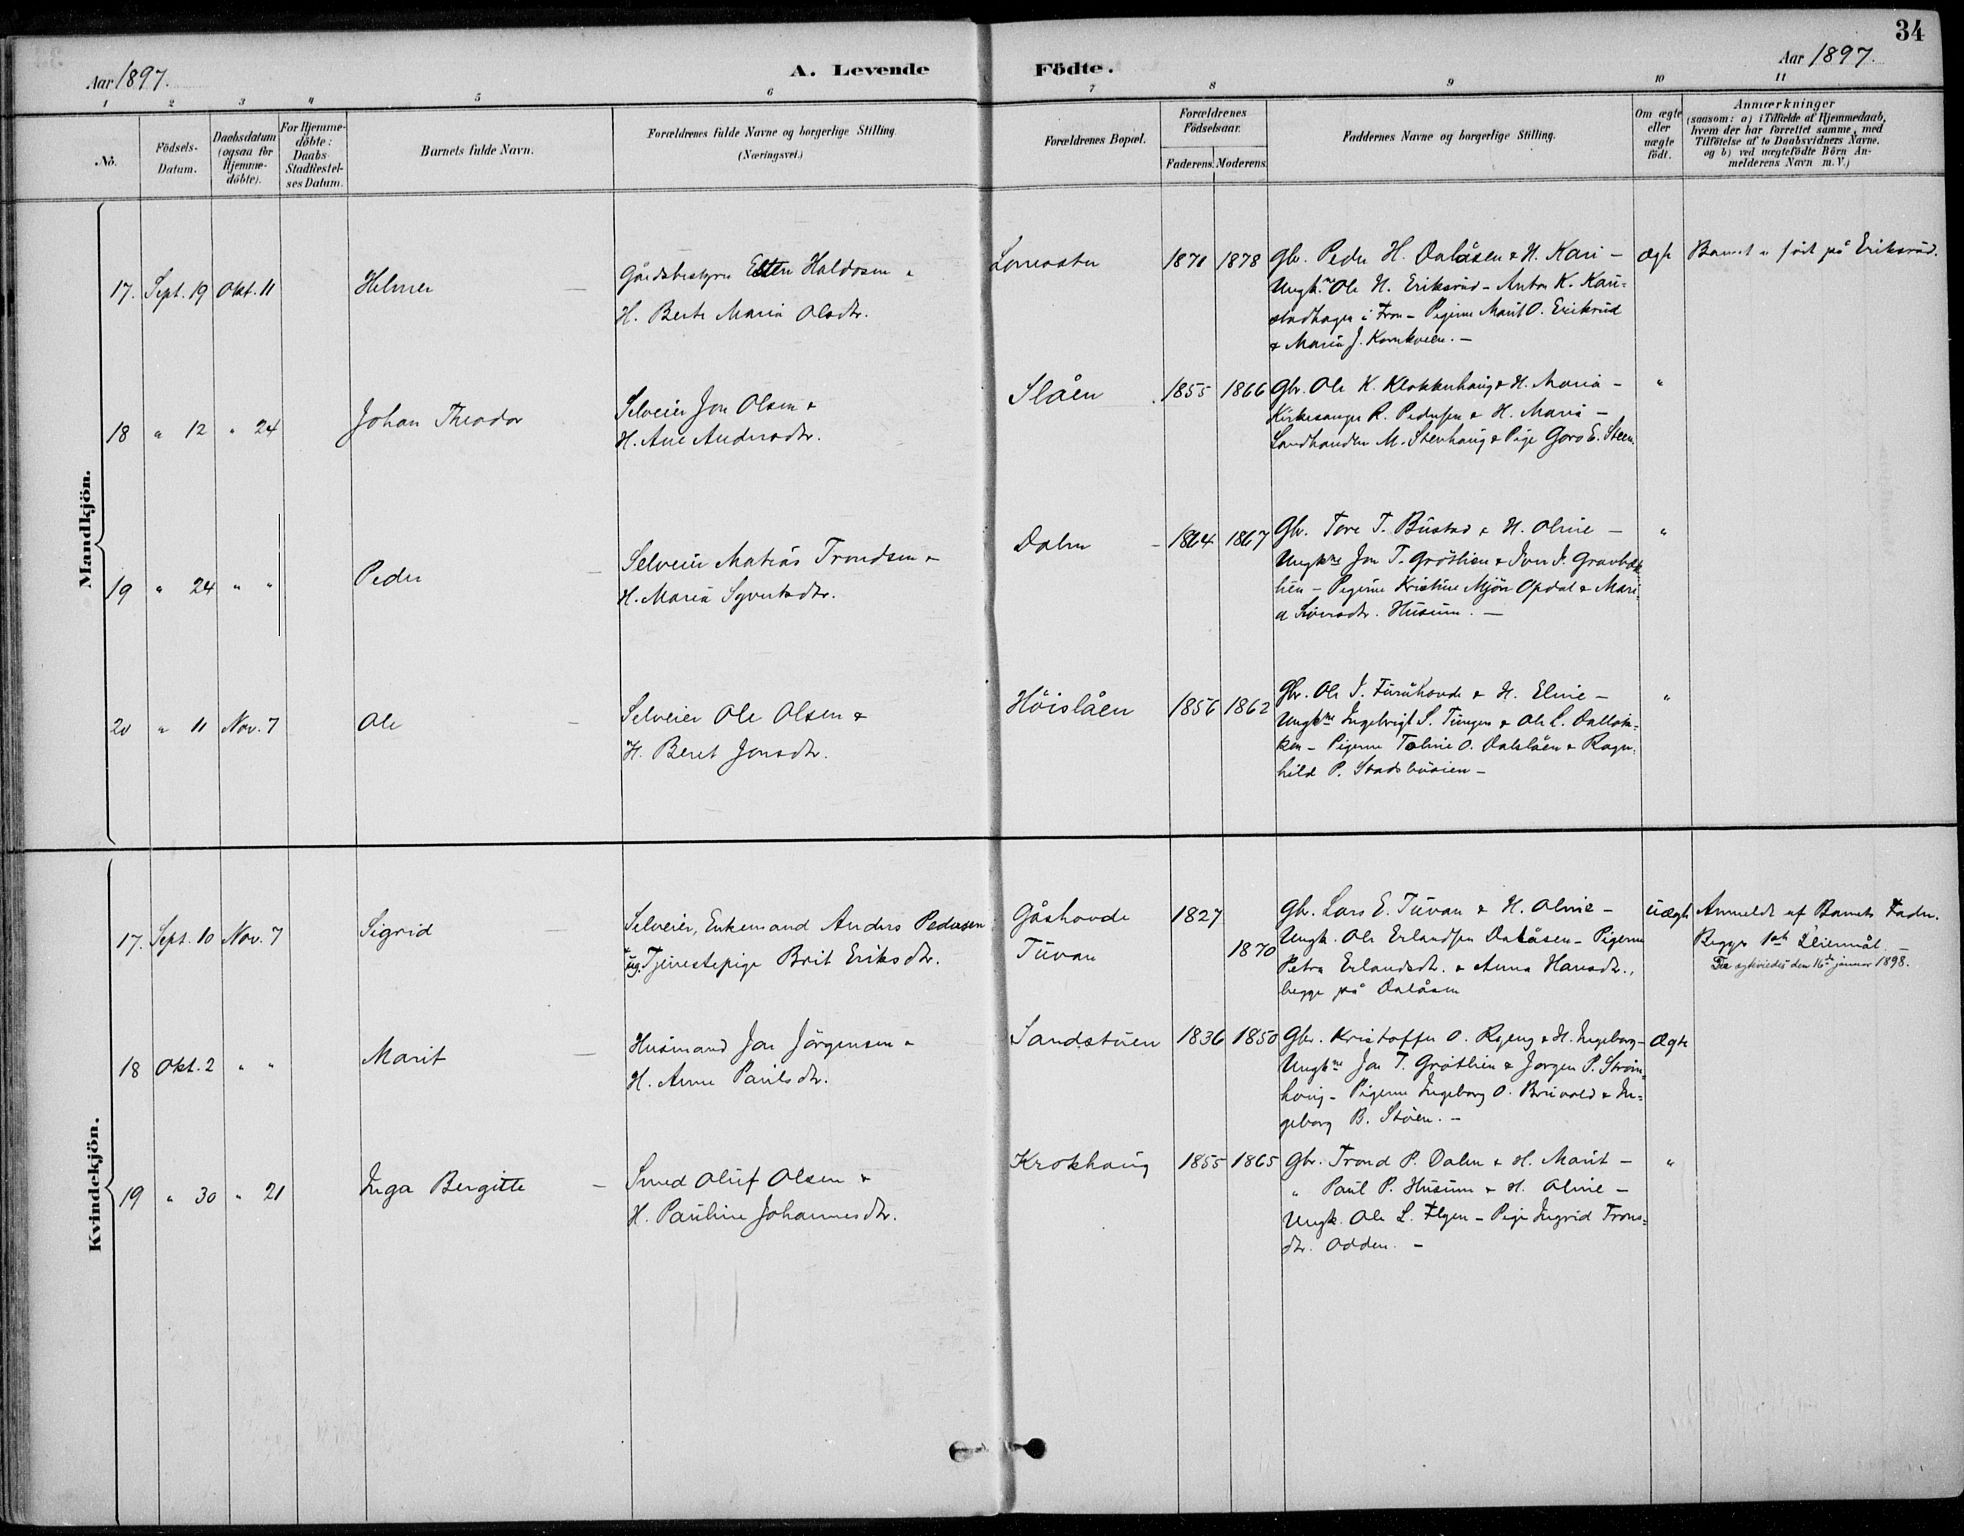 34
Aar 1897.
A. Levende Födte.
Aar 1897.
1 2 3 4 5 6 7 8 9 10 11
No.
Födsels-
Datum.
Daabsdatum
(ogsaa for
Hjemme-
döbte).
For Hjemme-
döbte:
Daabs-
Stadfæstel-
ses Datum.
Barnets fulde Navn.
Forældrenes fulde Navne og borgerlige Stilling.
(Næringsvei.)
Forældrenes Bopæl.
Forældrenes
Födselsaar.
Faderens. Moderens.
Faddernes Navne og borgerlige Stilling.
Om ægte
eller
uægte
födt.
Anmærkninger
(saasom: a) i Tilfælde af Hjemmedaab,
hvem der har forrettet samme, med
Tilföielse af to Daabsvidners Navne,
og b) ved uægtefödte Börn An-
melderens Navn m. V.)
Mandkjön.
17. Sept. 19 Okt. 11
Helmer
Gårdsbestyrer Esten Haldosen &
H. Berte Maria Olsdtr.
1871 1878
Gbr. Peder H. Dalåsen & H. Kari –
Ungk. Ole H. Eriksrud – Anton K. Kari-
stadhagen i Fron – Pigerne Marit O. Eriksrud
& Maria J. Kornkveen. –
Ægte
Barnet er födt på Eriksrud.
18 " 12 " 24
Johan Theodor
Selveier Jon Olsen &
H. Ane Andersdtr.
Slåen
1855 1866
Gbr. Ole K. Klokkerhaug & H. Maria –
Kirkesanger R. Pedersen & H. Maria –
Landhandler M. Stenhaug & Pige Goro E. Steen.
"
19 " 24 " "
Peder
Selveier Matias Trondsen &
H. Maria Syvertsdtr.
Dalen
1864 1867
Gbr. Tore T. Bustad & H. Oline –
Ungkne Jon T. Grötlien & Iver I. Gravbæk-
lien – Pigerne Kristine Mjöen Opdal & Mari-
a Siversdtr. Husum. –
"
20 " 11 Nov. 7
Ole
Selveier Ole Olsen &
H. Beret Jonsdtr.
Höislåen
1856 1862
Gbr. Ole I. Furuhovde & H. Eline –
Ungkne Ingebrigt S. Tungen & Ole L. Dallök-
ken – Pigerne Toline O. Dalslåen & Ragn-
hild P. Stadsbuöien –
"
Kvindekjön.
17. Sept. 10 Nov. 7
Sigrid
Selveier, Enkemand Anders Pedersen
& ug. Tjenestepige Brit Eriksdtr.
Gåshovde
Tuvan
1827
1870
Gbr. Lars E. Tuvan & H. Oline –
Ungk. Ole Erlandsen Dalåsen – Pigerne
Petra Erlandsdtr. & Anna Hansdtr.,
begge på Dalåsen
Uægte
Anmeldt af Barnets Fader.
Begges 1ste Leiermål. –
den 16de januar 1898.
18 Okt. 2 " "
Marit
Husmand Jon Jörgensen &
H. Anne Paulsdtr.
Sandstuen
1836 1850
Gbr. Kristoffer O. Ryeng & H. Ingeborg –
Ungkne Jon T. Grötlien & Jörgen P. Ström-
haug – Pigerne Ingeborg O. Bruvold & In-
geborg B. Stöen. –
Ægte
19 " 30 " 21
Inga Bergitte
Smed Oluf Olsen &
H. Pauline Johannesdtr.
Krokhaug
1855 1865
Gbr. Trond P. Dalen & H. Marit –
" Paul P. Husum & H. Oline –
Ungk. Ole L. Elgen – Pige Ingrid Trons-
dtr. Odden. –
"